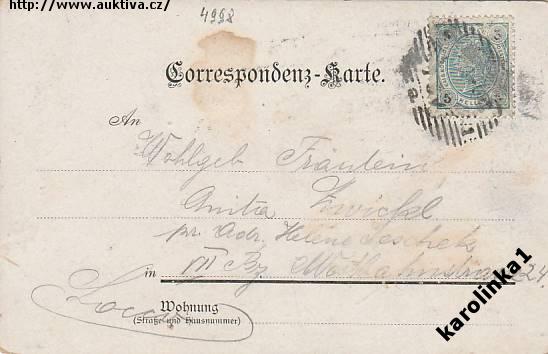 http://www.auktiva.cz/
4998
Correspondenz-Karte.
An
Wohlgeb Fräulein
Anitza Zwickl
pr. Adr. Helene
in III Bz 24
Loco
Wohnung
(Straße und Hausnummer)
karolinka1